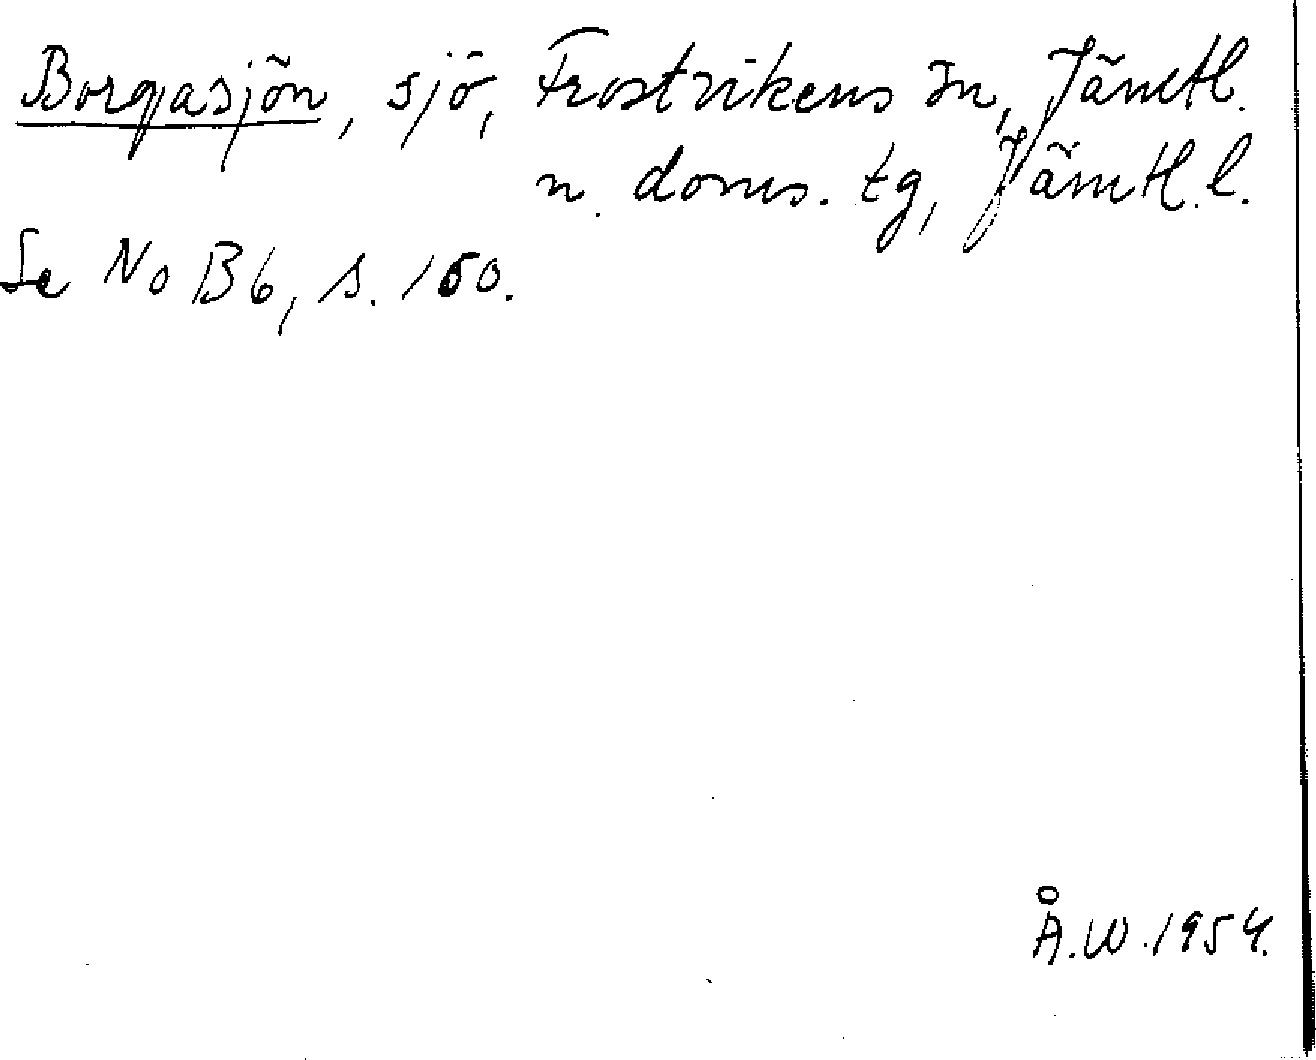 Borgasjön, sjö, Frostvikens sn, Jämtl.
n. doms. tg, Jämtl. l.
Se No B6, s. 150.
Å.W. 1954.